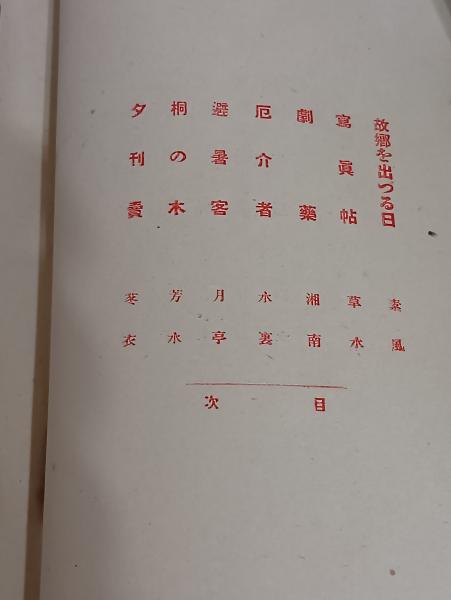 故鄕を出づる日 素風
寫眞帖 草水
劇藥 湘南
厄介者 水裏
避暑客 月亭
桐の木 芳水
夕刊賣 衣
目次